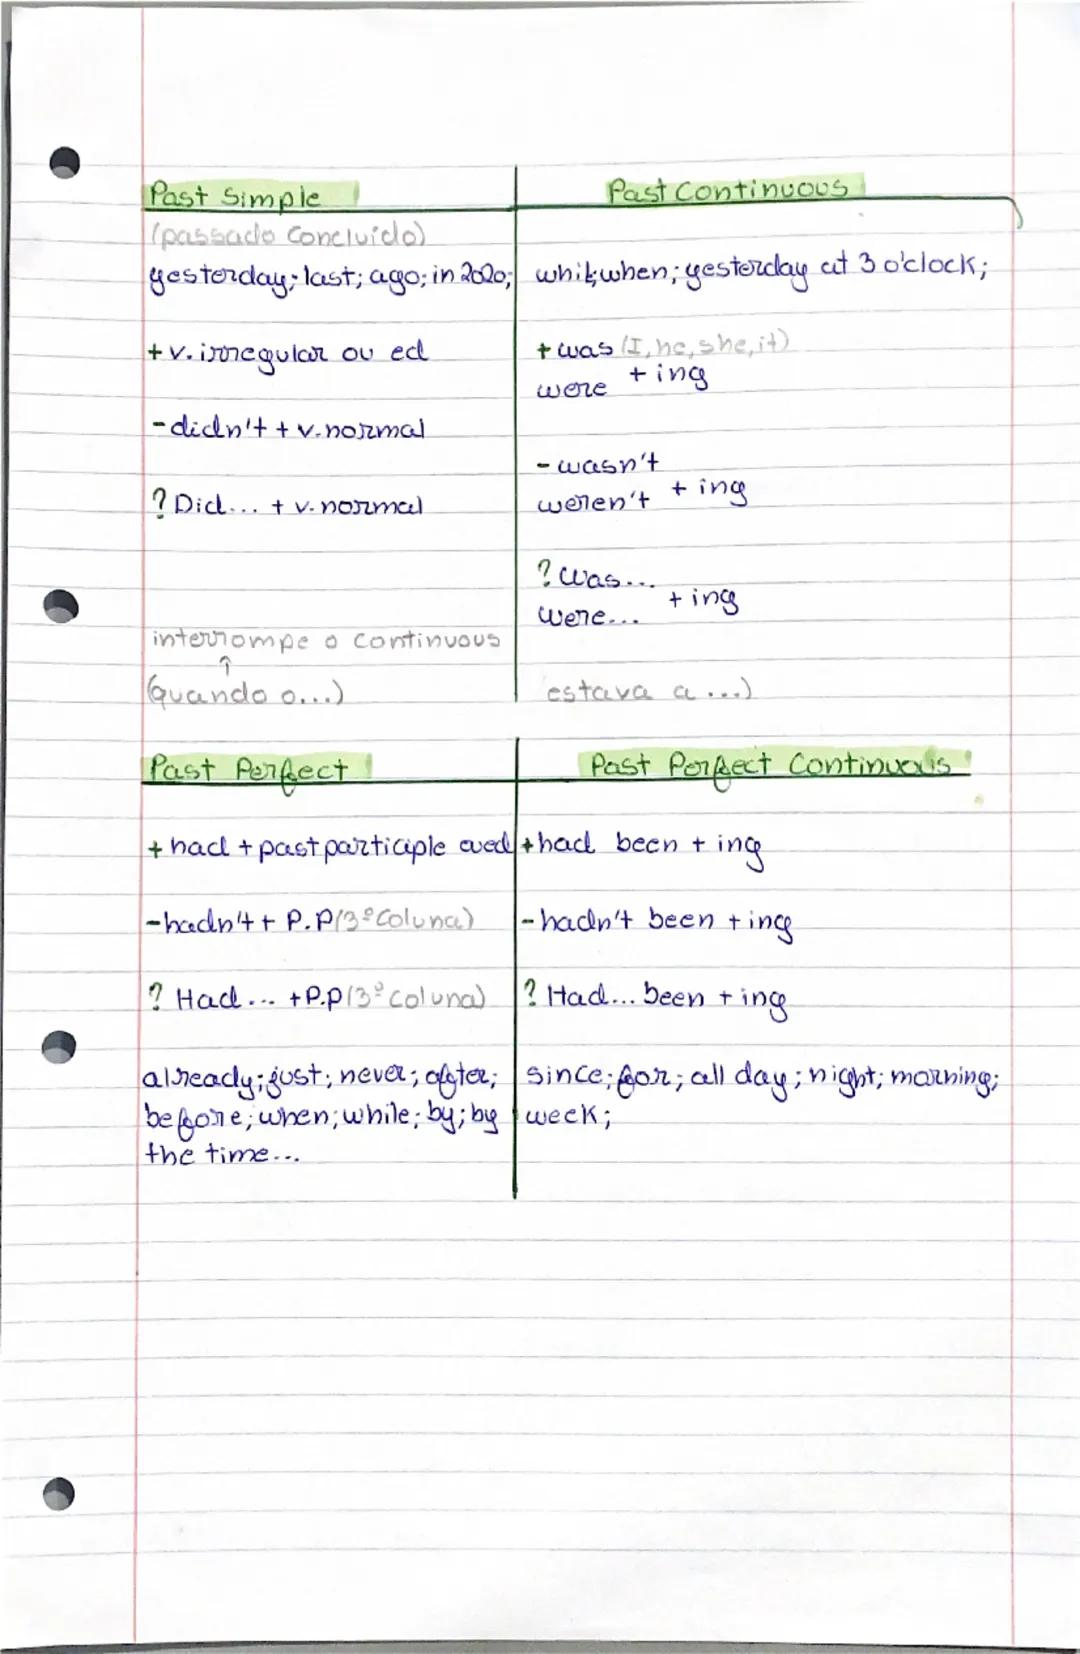 Past Simple
(passado concluído)
yesterday; last; ago; in 2020;
+ v. irregular ou ed
- didn't + v. normal
? Did... + v. normal
interrompe o continuous
↑
(quando o...)
Past Continuous
while; when; yesterday at 3 o'clock;
+ was (I, he, she, it)
were + ing
- wasn't
weren't + ing
? Was...
Were... + ing
estava a ...)
Past Perfect
+ had + past participle ou ed
- hadn't + P.P (3ª Coluna)
? Had ... + P.p (3ª coluna)
already; just; never; after;
before; when; while; by; by
the time...
Past Perfect Continuous
+ had been + ing
- hadn't been + ing
? Had... been + ing
since; for; all day; night; morning;
week;